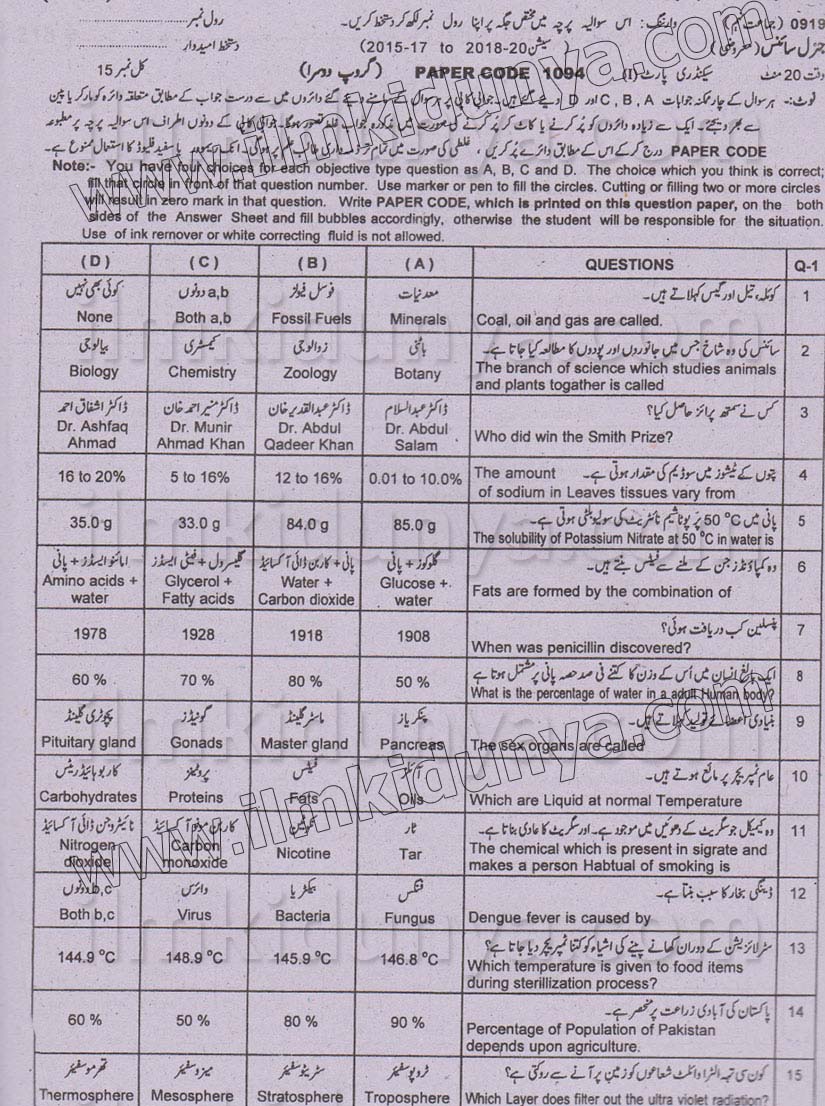 0919 (جماعت نہم) وارننگ: اس سوالیہ پرچہ میں مختص جگہ پر اپنا رول نمبر لکھ کر دستخط کریں۔ رول نمبر
جنرل سائنس (معروضی) (سیشن 2015-17 to 2018-20) دستخط امیدوار
وقت 20 منٹ سیکنڈری پارٹ (I) PAPER CODE 1094 (گروپ دوسرا) کل نمبر 15
نوٹ:- ہر سوال کے چار ممکنہ جوابات A, B, C اور D دیئے گئے ہیں۔ جوابی کاپی پر ہر سوال کے سامنے دیئے گئے دائروں میں سے درست جواب کے مطابق متعلقہ دائرہ کو مارکر یا پین
سے بھر دیجئے۔ ایک سے زیادہ دائروں کو پُر کرنے یا کاٹ کر پُر کرنے کی صورت میں مذکورہ جواب غلط تصور ہوگا۔ جوابی کاپی کے دونوں اطراف اس سوالیہ پرچہ پر مطبوعہ
PAPER CODE درج کرکے اس کے مطابق دائرے پُر کریں، غلطی کی صورت میں تمام تر ذمہ داری طالب علم پر ہوگی۔ انک ریموور یا سفید فلیوڈ کا استعمال ممنوع ہے۔
Note:- You have four choices for each objective type question as A, B, C and D. The choice which you think is correct;
fill that circle in front of that question number. Use marker or pen to fill the circles. Cutting or filling two or more circles
will result in zero mark in that question. Write PAPER CODE, which is printed on this question paper, on the both
sides of the Answer Sheet and fill bubbles accordingly, otherwise the student will be responsible for the situation.
Use of ink remover or white correcting fluid is not allowed.
( D ) ( C ) ( B ) ( A ) QUESTIONS Q-1
کوئی بھی نہیں a,b دونوں فوسل فیولز معدنیات کوئلہ، تیل اور گیس کہلاتے ہیں۔ 1
None Both a,b Fossil Fuels Minerals Coal, oil and gas are called.
بیالوجی کیمسٹری زوالوجی باٹنی سائنس کی وہ شاخ جس میں جانوروں اور پودوں کا مطالعہ کیا جاتا ہے۔ 2
Biology Chemistry Zoology Botany The branch of science which studies animals
and plants togather is called
ڈاکٹر اشفاق احمد ڈاکٹر منیر احمد خان ڈاکٹر عبدالقدیر خان ڈاکٹر عبدالسلام کس نے سمتھ پرائز حاصل کیا؟ 3
Dr. Ashfaq Dr. Munir Dr. Abdul Dr. Abdul Who did win the Smith Prize?
Ahmad Ahmad Khan Qadeer Khan Salam
16 to 20% 5 to 16% 12 to 16% 0.01 to 10.0% The amount پتوں کے ٹیشوز میں سوڈیم کی مقدار ہوتی ہے۔ 4
of sodium in Leaves tissues vary from
35.0 g 33.0 g 84.0 g 85.0 g پانی میں 50 °C پر پوٹاشیم نائٹریٹ کی سولیوبلٹی ہوتی ہے۔ 5
The solubility of Potassium Nitrate at 50 °C in water is
امائنو ایسڈز + پانی گلیسرول + فیٹی ایسڈز پانی + کاربن ڈائی آکسائیڈ گلوکوز + پانی وہ کمپاؤنڈز جن کے ملنے سے فیٹس بنتے ہیں۔ 6
Amino acids + Glycerol + Water + Glucose + Fats are formed by the combination of
water Fatty acids Carbon dioxide water
1978 1928 1918 1908 پنسلین کب دریافت ہوئی؟ 7
When was penicillin discovered?
60 % 70 % 80 % 50 % ایک بالغ انسان میں اُس کے وزن کا کتنے فی صد حصہ پانی پر مشتمل ہوتا ہے 8
What is the percentage of water in a adult Human body?
پچوٹری گلینڈ گونیڈز ماسٹر گلینڈ پنکریاز بنیادی اعضائے تولید کہلاتے ہیں۔ 9
Pituitary gland Gonads Master gland Pancreas The sex organs are called
کاربوہائیڈریٹس پروٹینز فیٹس آئلز عام ٹمپریچر پر مائع ہوتے ہیں۔ 10
Carbohydrates Proteins Fats Oils Which are Liquid at normal Temperature
نائیٹروجن ڈائی آکسائیڈ کاربن مونو آکسائیڈ نکوٹین ٹار وہ کیمیکل جو سگریٹ کے دھوئیں میں موجود ہے۔ اور سگریٹ کا عادی بناتا ہے۔ 11
Nitrogen Carbon Nicotine Tar The chemical which is present in sigrate and
dioxide monoxide makes a person Habtual of smoking is
b,c دونوں وائرس بیکٹریا فنگس ڈینگی بخار کا سبب بنتا ہے۔ 12
Both b,c Virus Bacteria Fungus Dengue fever is caused by
144.9 °C 148.9 °C 145.9 °C 146.8 °C سٹرلائزیشن کے دوران کھانے پینے کی اشیاء کو کتنا ٹمپریچر دیا جاتا ہے؟ 13
Which temperature is given to food items
during sterillization process?
60 % 50 % 80 % 90 % پاکستان کی آبادی زراعت پر منحصر ہے۔ 14
Percentage of Population of Pakistan
depends upon agriculture.
تھرموسفیئر میزوسفیئر سٹریٹوسفیئر ٹروپوسفیئر کون سی تہہ الٹراوائلٹ شعاعوں کو زمین پر آنے سے روکتی ہے؟ 15
Thermosphere Mesosphere Stratosphere Troposphere Which Layer does filter out the ultra violet radiation?
www.ilmkidunya.com